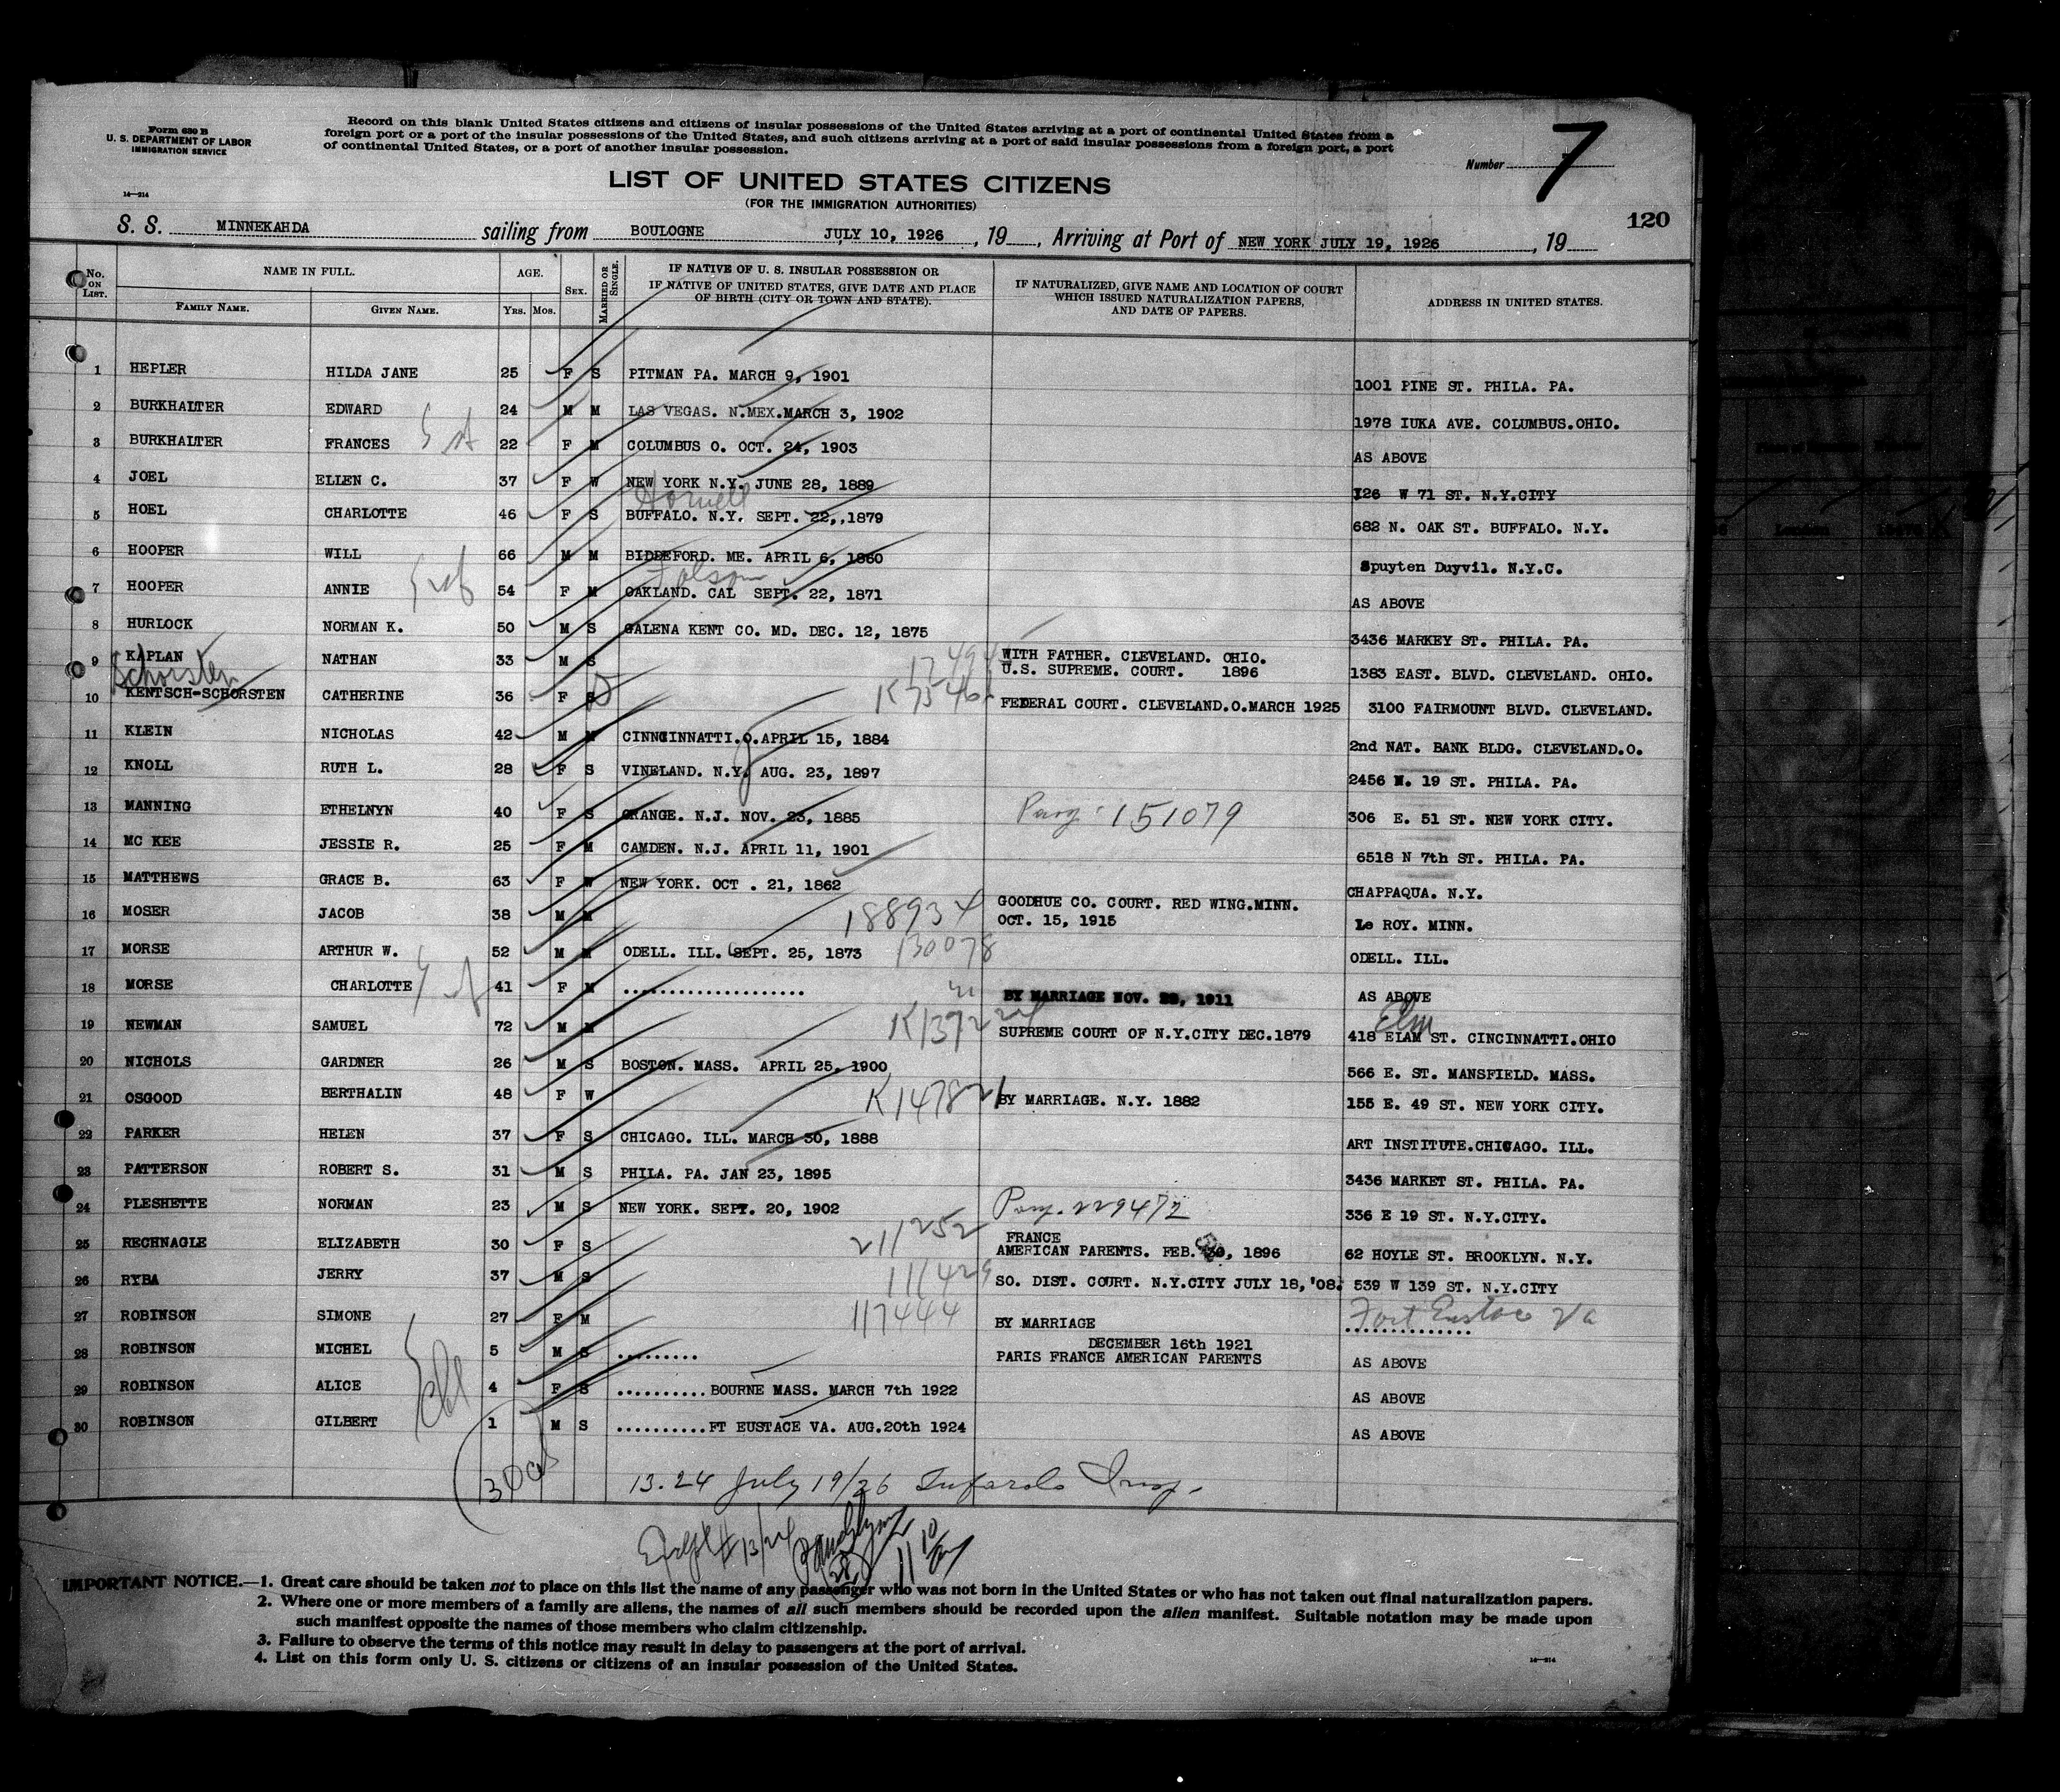 Form 630 B
U. S. DEPARTMENT OF LABOR
IMMIGRATION SERVICE
14—214
Record on this blank United States citizens and citizens of insular possessions of the United States arriving at a port of continental United States from a
foreign port or a port of the insular possessions of the United States, and such citizens arriving at a port of said insular possessions from a foreign port, a port
of continental United States, or a port of another insular possession.
Number 7
LIST OF UNITED STATES CITIZENS
(FOR THE IMMIGRATION AUTHORITIES)
120
S. S. MINNEKAHDA sailing from BOULOGNE JULY 10, 1926 , 19 , Arriving at Port of NEW YORK JULY 19, 1926 , 19
No. ON LIST. NAME IN FULL. FAMILY NAME. GIVEN NAME. AGE. YRS. MOS. SEX. MARRIED OR SINGLE. IF NATIVE OF U. S. INSULAR POSSESSION OR IF NATIVE OF UNITED STATES, GIVE DATE AND PLACE OF BIRTH (CITY OR TOWN AND STATE). IF NATURALIZED, GIVE NAME AND LOCATION OF COURT WHICH ISSUED NATURALIZATION PAPERS, AND DATE OF PAPERS. ADDRESS IN UNITED STATES.
1 HEPLER HILDA JANE 25 F S PITMAN PA. MARCH 9, 1901 1001 PINE ST. PHILA. PA.
2 BURKHALTER EDWARD 24 M M LAS VEGAS. N.MEX.MARCH 3, 1902 1978 IUKA AVE. COLUMBUS.OHIO.
3 BURKHALTER FRANCES 22 F M COLUMBUS O. OCT. 24, 1903 AS ABOVE
4 JOEL ELLEN C. 37 F W NEW YORK N.Y. JUNE 28, 1889 126 W 71 ST. N.Y.CITY
Hornell
5 HOEL CHARLOTTE 46 F S BUFFALO. N.Y. SEPT. 22,,1879 682 N. OAK ST. BUFFALO. N.Y.
6 HOOPER WILL 66 M M BIDDEFORD. ME. APRIL 6, 1860 Spuyten Duyvil. N.Y.C.
Folsom
7 HOOPER ANNIE 54 F M OAKLAND. CAL SEPT. 22, 1871 AS ABOVE
8 HURLOCK NORMAN K. 50 M S GALENA KENT CO. MD. DEC. 12, 1875 3436 MARKEY ST. PHILA. PA.
9 KAPLAN NATHAN 33 M S WITH FATHER. CLEVELAND. OHIO. U.S. SUPREME. COURT. 1896 1383 EAST. BLVD. CLEVELAND. OHIO.
Schorsten
10 KENTSCH-SCHORSTEN CATHERINE 36 F S D FEDERAL COURT. CLEVELAND.O.MARCH 1925 3100 FAIRMOUNT BLVD. CLEVELAND.
11 KLEIN NICHOLAS 42 M M CINNCINNATTI.O.APRIL 15, 1884 2nd NAT. BANK BLDG. CLEVELAND.O.
12 KNOLL RUTH L. 28 F S VINELAND. N.Y. AUG. 23, 1897 2456 N. 19 ST. PHILA. PA.
13 MANNING ETHELNYN 40 F S ORANGE. N.J. NOV. 23, 1885 151079 306 E. 51 ST. NEW YORK CITY.
14 MC KEE JESSIE R. 25 F M CAMDEN. N.J. APRIL 11, 1901 6518 N 7th ST. PHILA. PA.
15 MATTHEWS GRACE B. 63 F W NEW YORK. OCT . 21, 1862 CHAPPAQUA. N.Y.
16 MOSER JACOB 38 M M 188934 GOODHUE CO. COURT. RED WING.MINN. OCT. 15, 1915 Le ROY. MINN.
17 MORSE ARTHUR W. 52 M M ODELL. ILL. SEPT. 25, 1873 130078 ODELL. ILL.
18 MORSE CHARLOTTE 41 F M .................... BY MARRIAGE NOV. 1911 AS ABOVE
Elm
19 NEWMAN SAMUEL 72 M M K137224 SUPREME COURT OF N.Y.CITY DEC.1879 418 ELAM ST. CINCINNATTI.OHIO
20 NICHOLS GARDNER 26 M S BOSTON. MASS. APRIL 25, 1900 566 E. ST. MANSFIELD. MASS.
21 OSGOOD BERTHALIN 48 F W K147821 BY MARRIAGE. N.Y. 1882 155 E. 49 ST. NEW YORK CITY.
22 PARKER HELEN 37 F S CHICAGO. ILL. MARCH 30, 1888 ART INSTITUTE.CHICAGO. ILL.
23 PATTERSON ROBERT S. 31 M S PHILA. PA. JAN 23, 1895 3436 MARKET ST. PHILA. PA.
24 PLESHETTE NORMAN 23 M S NEW YORK. SEPT. 20, 1902 229472 336 E 19 ST. N.Y.CITY.
25 RECHNAGLE ELIZABETH 30 F S 211252 FRANCE AMERICAN PARENTS. FEB. , 1896 62 HOYLE ST. BROOKLYN. N.Y.
26 RYBA JERRY 37 M S 111429 SO. DIST. COURT. N.Y.CITY JULY 18, '08. 539 W 139 ST. N.Y.CITY
27 ROBINSON SIMONE 27 F M 117444 BY MARRIAGE Fort Eustace Va
28 ROBINSON MICHEL 5 M S ......... DECEMBER 16th 1921 PARIS FRANCE AMERICAN PARENTS AS ABOVE
29 ROBINSON ALICE 4 F S ..........BOURNE MASS. MARCH 7th 1922 AS ABOVE
30 ROBINSON GILBERT 1 M S ..........FT EUSTACE VA. AUG.20th 1924 AS ABOVE
13.24 July 19/26 Insp.
IMPORTANT NOTICE.—1. Great care should be taken not to place on this list the name of any passenger who was not born in the United States or who has not taken out final naturalization papers.
2. Where one or more members of a family are aliens, the names of all such members should be recorded upon the alien manifest. Suitable notation may be made upon
such manifest opposite the names of those members who claim citizenship.
3. Failure to observe the terms of this notice may result in delay to passengers at the port of arrival.
4. List on this form only U. S. citizens or citizens of an insular possession of the United States.
14—214